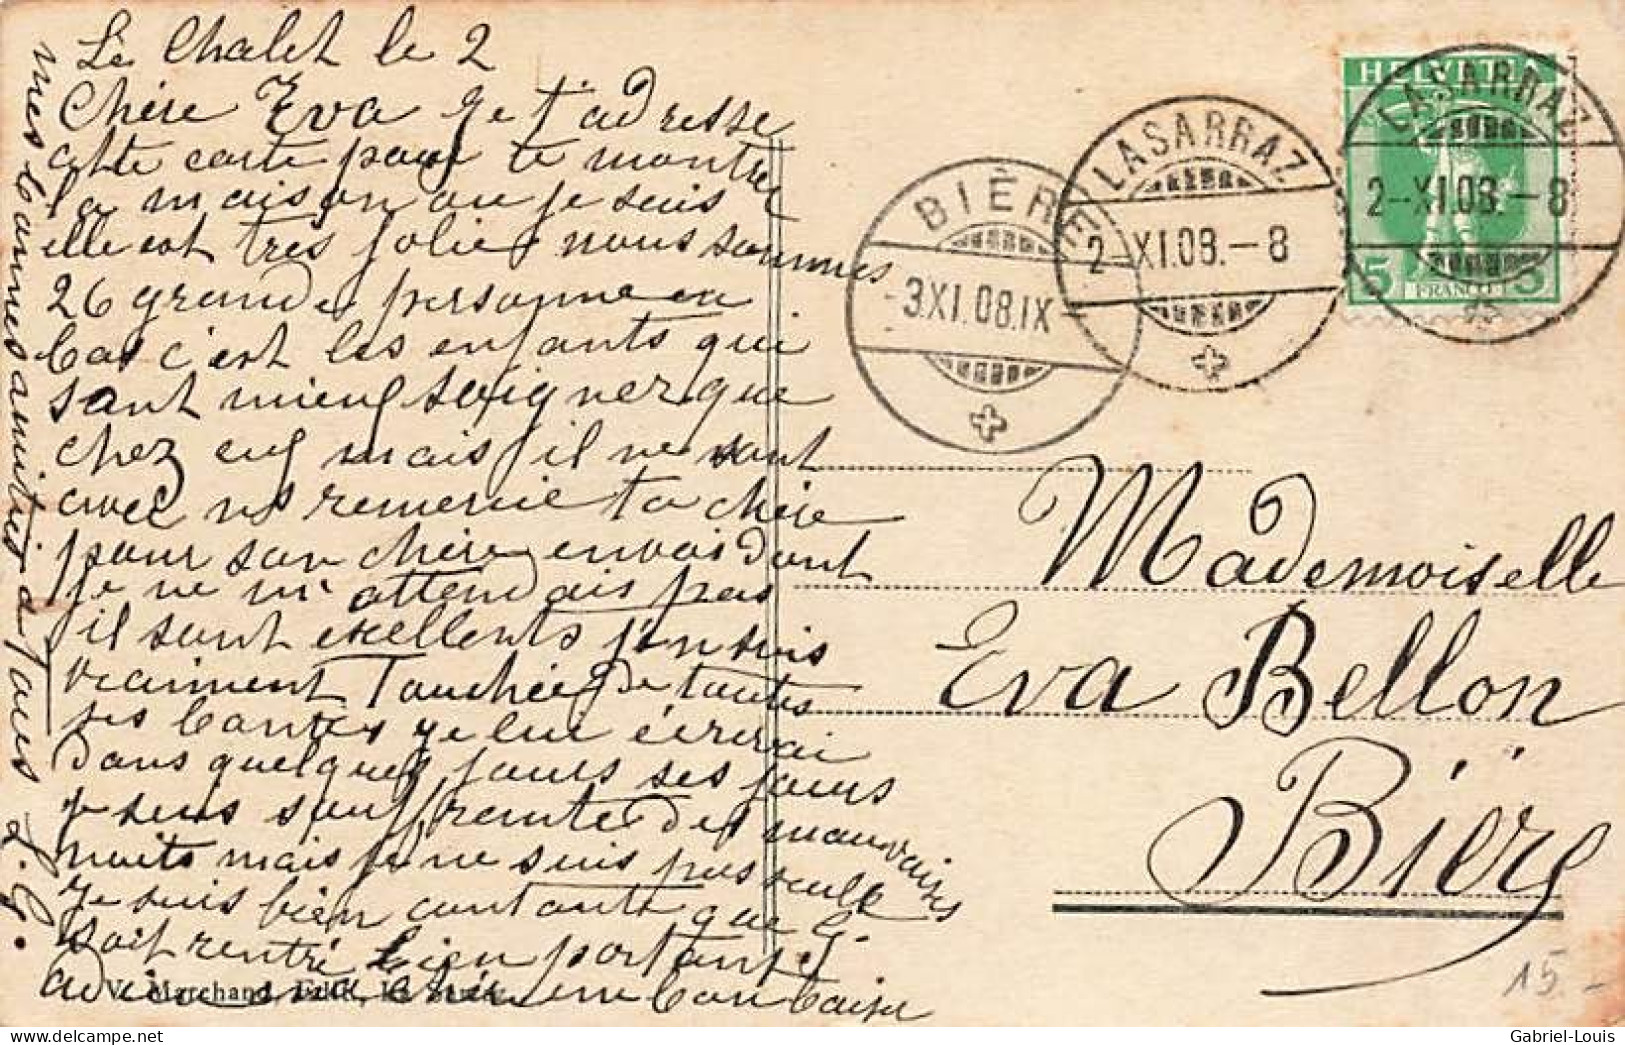 Le Chalet le 2
Chère Eva Je t'adresse
cette carte pour te montrer
la maison ou je suis
elle est très jolie nous sommes
26 grande personne en
bas c'est les enfants qui
sont mieux soigner que
chez eux mais il ne sont
avec ns remercie ta chère
pour son chère envois dont
je ne m'attendais pas
il sont exellents j'en suis
vraiment Touchée de toutes
ses bontés je lui écrirai
dans quelques jours ses jours
je suis souffrente des mauvaises
nuits mais je ne suis pas seule
Je suis bien contante que G.
soit rentré bien portant
adieu chère un bon baiser
mes bonnes amitiés a Tous L.G.
V. Marchand, Edit., La Sarraz
HELVETIA
5 FRANCO 5
LASARRAZ
2-XI.08.-8
LASARRAZ
2-XI.08.-8
BIÈRE
-3.XI.08.IX-
Mademoiselle
Eva Bellon
Bière
15.-
Gabriel-Louis